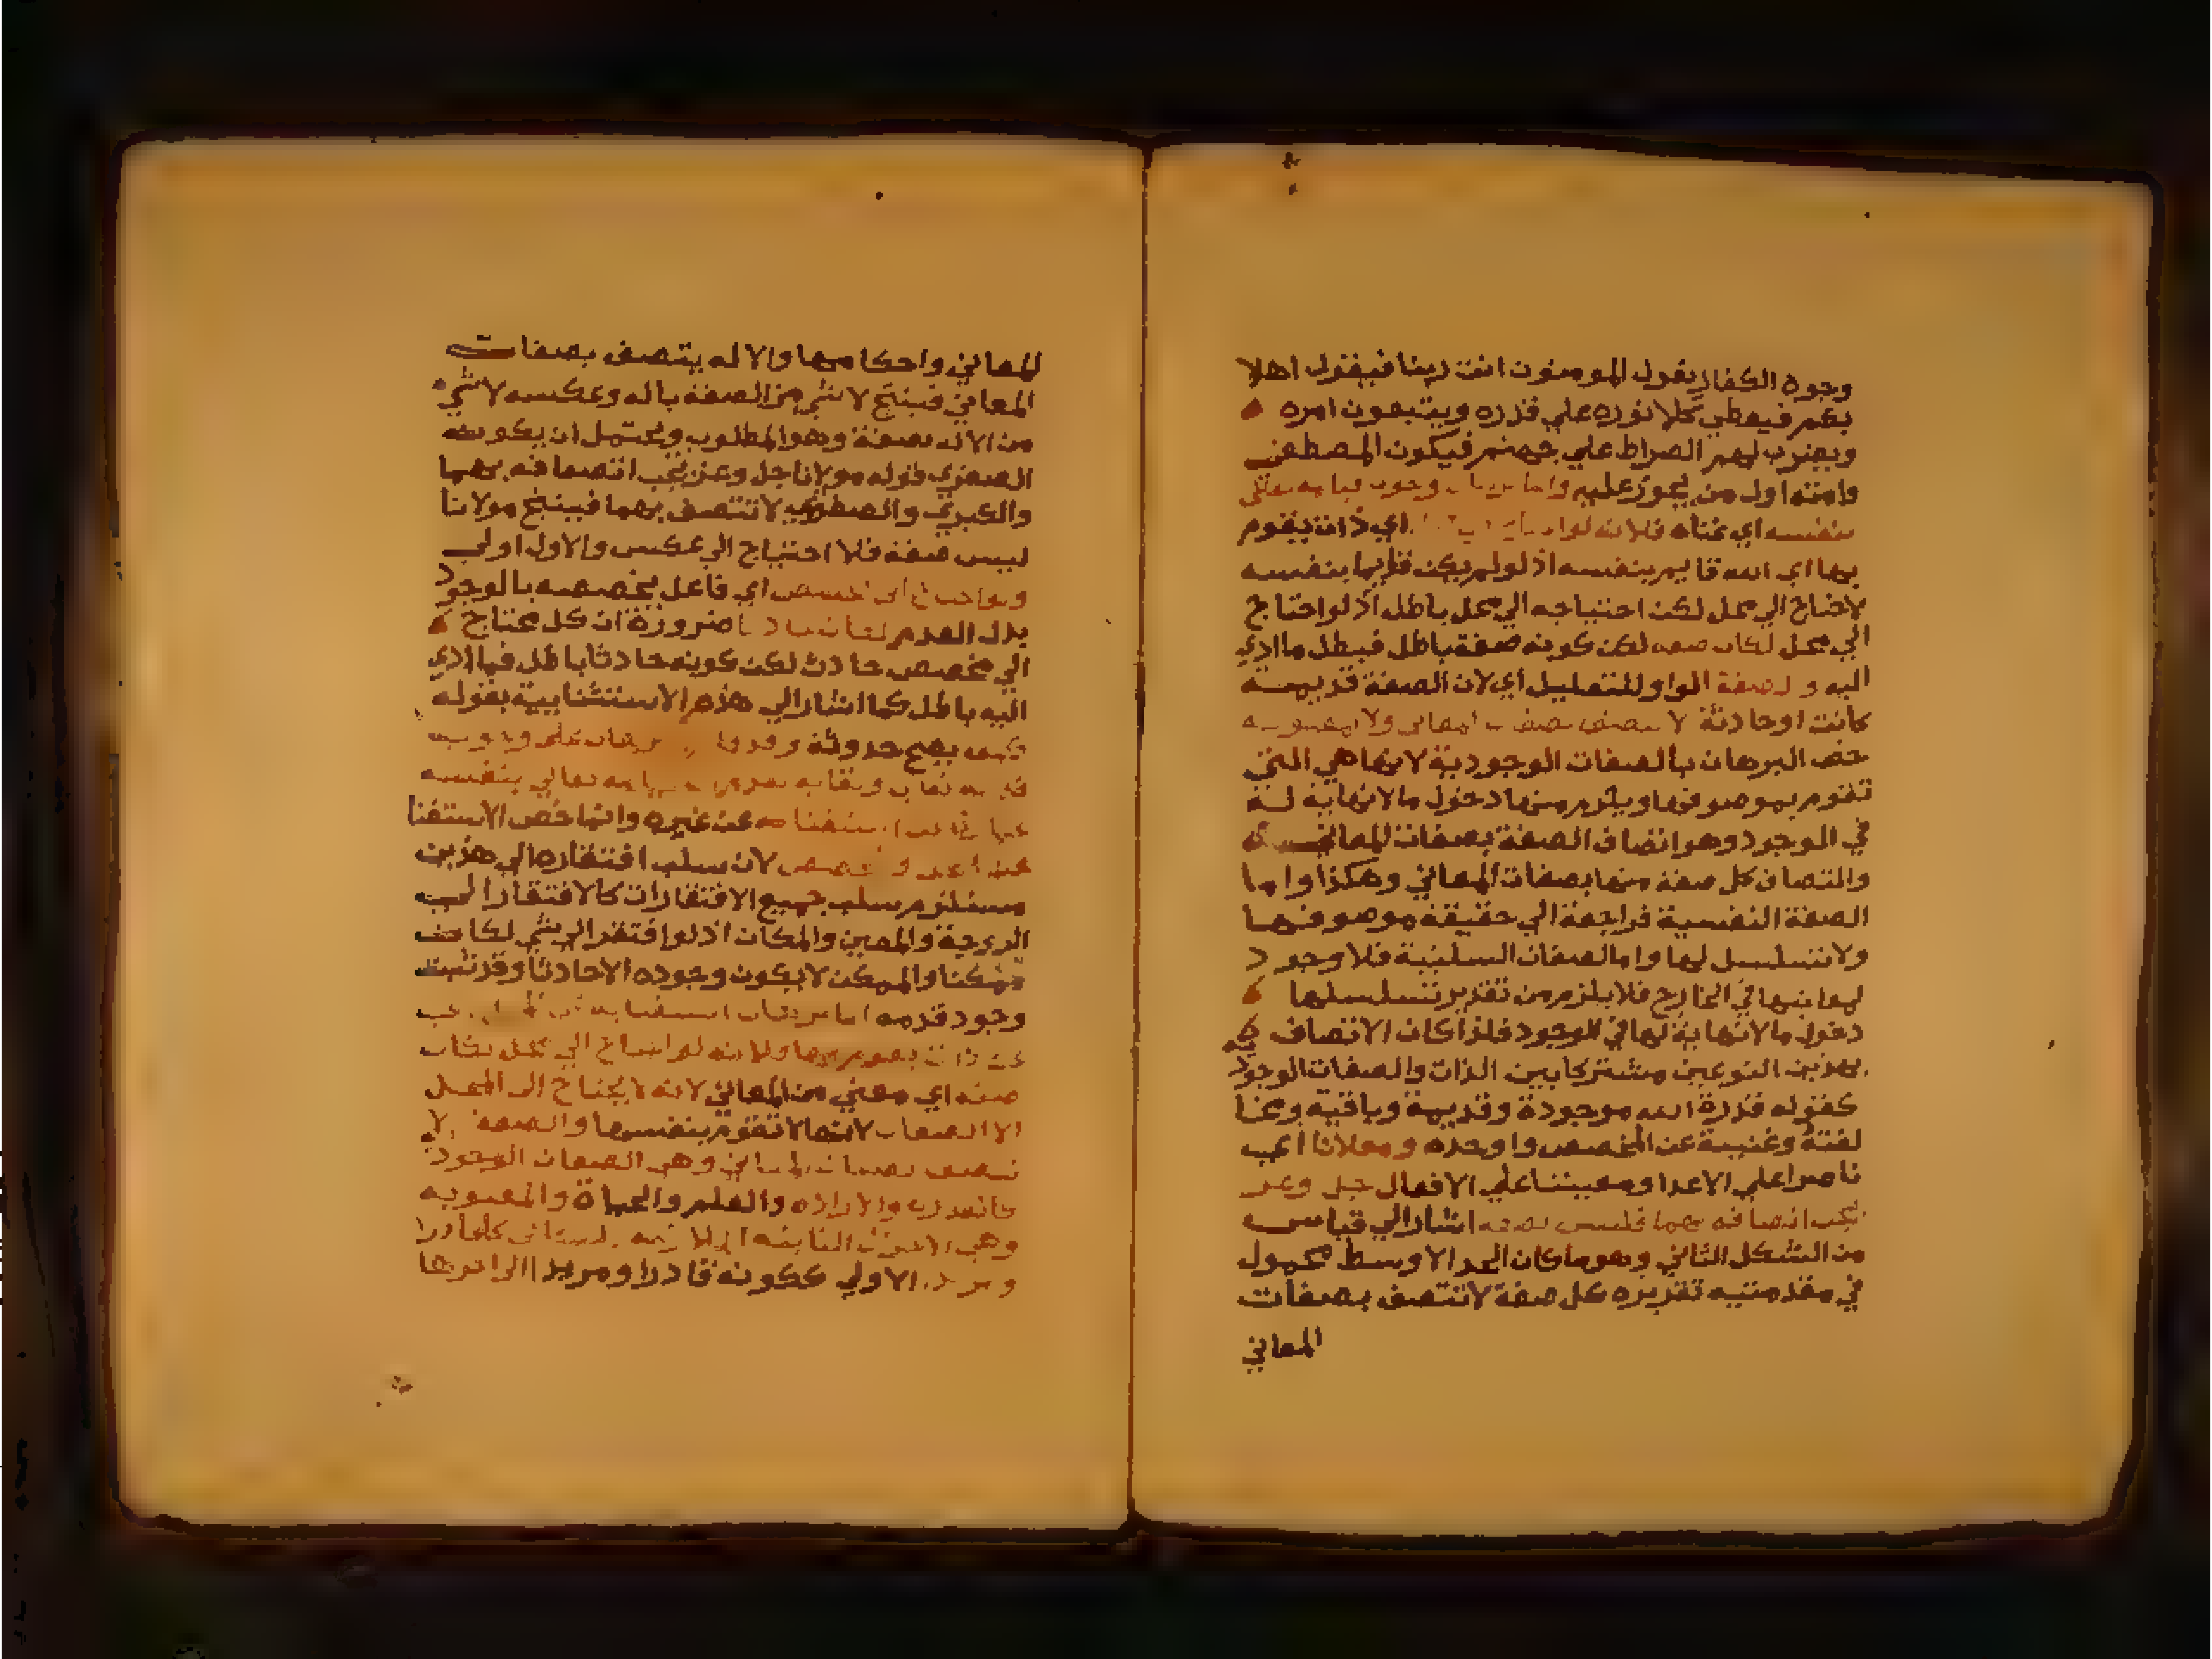 وجوه الكفار يقول المومنون انت ربنا فيقول اهلا
بكم فيعطي كلا نوره علي قدره ويتبعون امره
ويضرب لهم الصراط علي جهنم فيكون المصطفى
وامته اول من يجوز عليه واما برهان وجوب قيامه تعالى
بنفسه اي غناه فلانه لو احتاج اي ذات يقوم
بها اي انه قايم بنفسه اذ لو لم يكن قايما بنفسه
لاحتاج الي محل لكن احتياجه الي محل باطل اذ لو احتاج
الي محل لكان صفه لكن كونه صفة باطل فبطل ما ادي
اليه والصفة الواو للتعليل أي لان الصفة قديمة
كانت او حادثة لا تتصف بصفات المعاني ولا المعنويه
خص البرهان بالصفات الوجودية لانها هي التي
تقوم بموصوفها ويلزم منها دخول ما لا نهاية له
في الوجود وهو اتصاف الصفة بصفات المعاني
واتصاف كل صفة منها بصفات المعاني وهكذا واما
الصفة النفسية فراجعة الي حقيقة موصوفها
ولا تتسلسل لها واما الصفات السلبية فلا وجود
لمعانيها في الخارج فلا يلزم من تقدير تسلسلها
دخول ما لا نهاية لها في الوجود فلذا كان الاتصاف
بهذين النوعين مشتركا بين الذات والصفات الوجود
كقوله قدرة الله موجودة وقديمة وباقية
لفتة وغنيية عن المخصص واوحده ومولانا اي
ناصرا علي الاعدا ومعيننا علي الافعال جل وعز
يجب اتصافه بهما فليس بصفه اشار الي قياس
من الشكل الثاني وهو ما كان الحد الاوسط محمول
في مقدمتيه تقريره كل صفة لا تتصف بصفات
المعاني
المعاني واحكامها والاله يتصف بصفات
المعاني فينتج لا شي من الصفة باله وعكسه لا شي
من الاله بصفة وهو المطلوب ويحتمل ان يكون
الصغرى قوله مولانا جل وعز يجب اتصافه بهما
والكبرى والصغرى لا تتصف بهما فينتج مولانا
ليس صفة فلا احتياج الي عكس والاول اولي
ولو احتاج الى مخصص اي فاعل يخصصه بالوجود
بدل العدم لكان حادثا ضرورة ان كل محتاج
الي مخصص حادث لكن كونه حادثا باطل فما ادي
اليه باطل كما اشار الي هذه الاستثنايية بقوله
كيف يصح حدوثه وقد قام البرهان على وجوب
قدمه تعالى وبقايه قيامه تعالي بنفسه
استغناه عن غيره وانما خص الاستغنا
عن المحل والمخصص لان سلب افتقاره الي هذين
مستلزم سلب جميع الافتقارات كالافتقار الي
الزوجة والمعين والمكان اذ لو افتقر الي شي لكان
ممكنا والممكن لا يكون وجوده الا حادثا وقد ثبت
وجود قدمه اما برهان استغنايه
ذات يقوم بها فلانه لو احتاج الي محل لكان
صفه اي معني من المعاني لانه لا يحتاج الى المحل
الا الصفات لانها لا تقوم بنفسها والصفه لا
تتصف بصفات المعاني وهي الصفات الوجود
كالقدره والاراده والعلم والحياة والمعنويه
وهي الاحوال الثابته اللازمه للمعاني
الاولي ككونه قادرا ومريدا الى اخرها